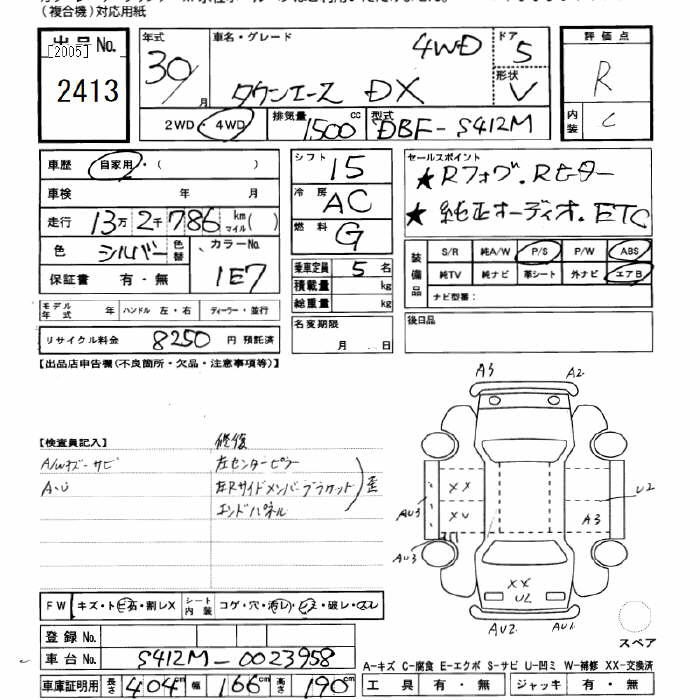 （複合機）対応用紙
出品No.
[2005]
2413
年式
30/
月
車名・グレード
4WD
タウンエース DX
ドア
5
形状
V
2WD・4WD
排気量
1500 cc
型式
DBF-S412M
評価点
R
内装
C
車歴
自家用・( )
車検 年 月
走行 13万 2千 786 km マイル( )
色 シルバー 色替
カラーNo.
1E7
保証書 有・無
モデル年式 年 ハンドル 左・右 ディーラー・並行
リサイクル料金 8250 円 預託済
シフト 15
冷房 AC
燃料 G
乗車定員 5 名
積載量 kg
総重量 kg
名変期限
月 日
セールスポイント
★Rフォグ.Rヒーター
★純正オーディオ.ETC
装備品
S/R 純A/W P/S P/W ABS
純TV 純ナビ 革シート 外ナビ エアB
ナビ型番：
後日品
【出品店申告欄(不良箇所・欠品・注意事項等)】
【検査員記入】
A/Wキズ-サビ
A・U
修復
左センターピラー
左Rサイドメンバーブラケット
エンドパネル
歪
A3
A2
AU3
XX
XU
AU3
U2
A3
XX
U2
AU2
AU1
スペア
FW キズ・トビ石・割レX
シート内装 コゲ・穴・汚レ・シミ・破レ・スレ
登録No.
車台No. S412M-0023958
車庫証明用 長さ 404 cm 幅 166 cm 高さ 190 cm
A-キズ C-腐食 E-エクボ S-サビ U-凹ミ W-補修 XX-交換済
工具 有・無 ジャッキ 有・無